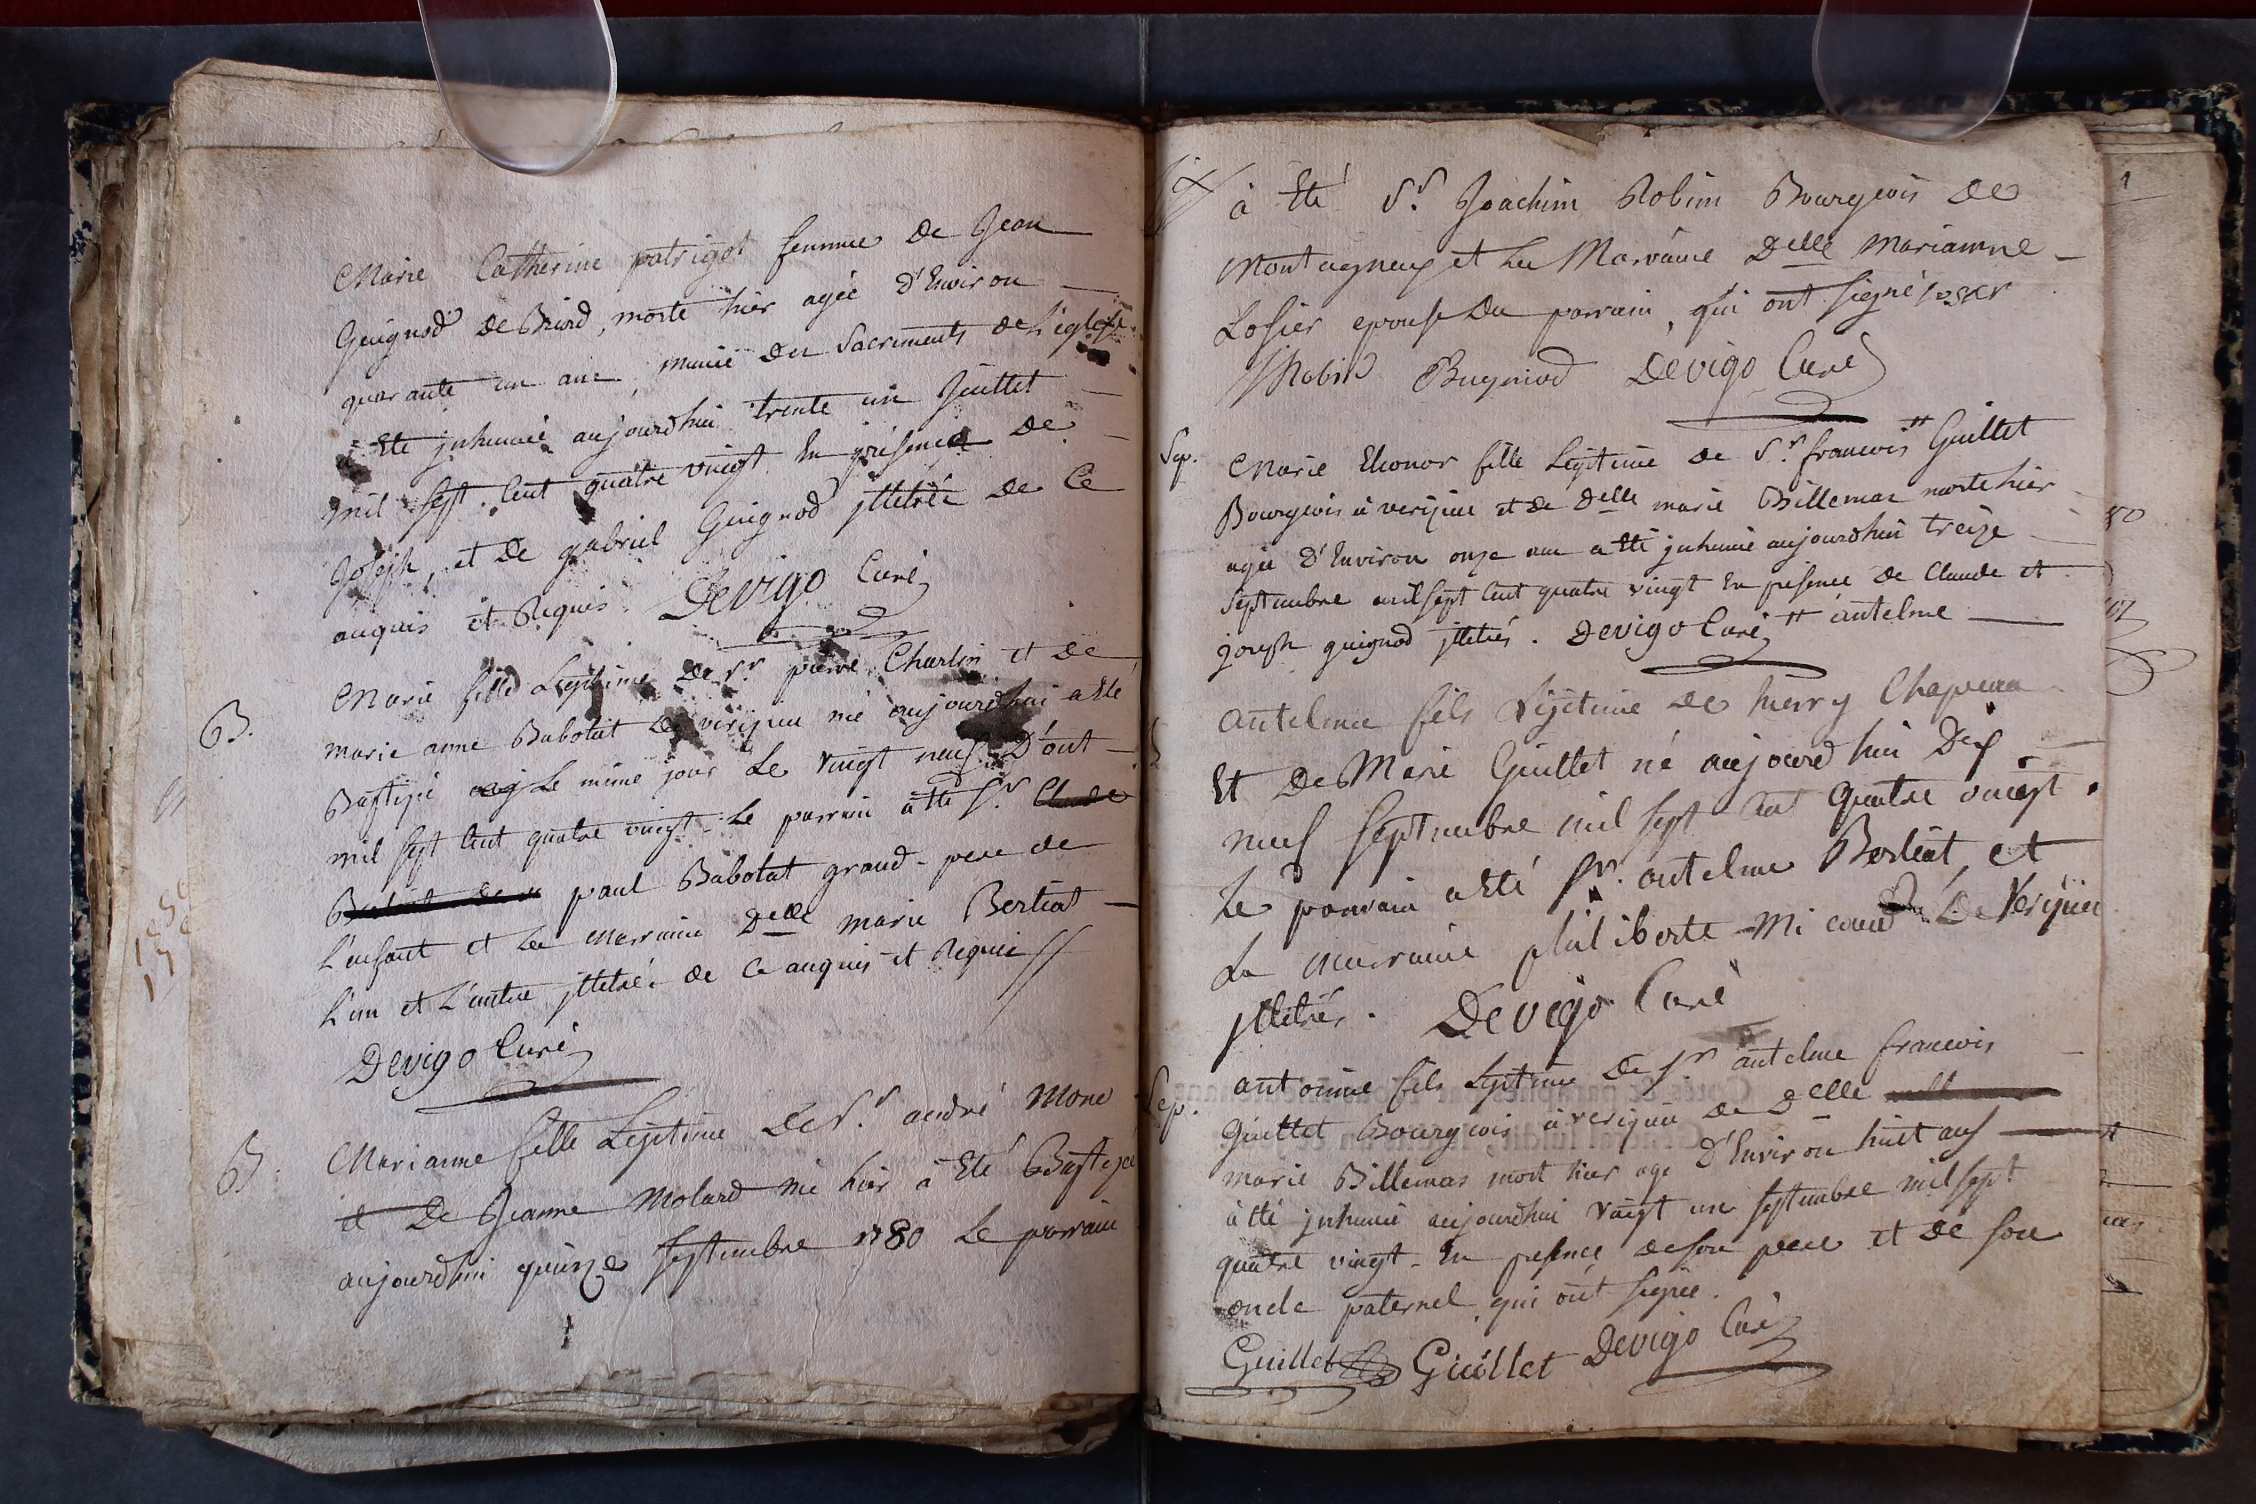 Marie Catherine patriget femme de Jean
Guignod de Briord, morte hier agée d'Environ
quarante un ans, munie des Sacrements de l'eglise
à Eté jnhumée aujourdhui trente un Juillet
mil sept. Cent quatre vingt En présence de
Joseph, et de gabriel Guignod jlletrés de Ce
anquis et Requis. Devigo Curé
B. Marie fille Legitime de Sr. pierre Charlin et de
marie anne Babolat de verizieu née aujourdhui a Eté
Baptisée le même jour Le vingt neuf D'out
mil sept Cent quatre vingt. Le parrain a Eté Sr. Claude
paul Babolat grand-pere de
L'enfant et La Marraine Delle marie Bertiat
L'un et L'autre jlletrés de Ce anquis et Requis
Devigo Curé
B. Marianne fille Legitime De Sr. andré Mone
et De Jeanne Molard née hier à Eté Baptisée
aujourdhui quinze Septembre 1780 Le parrain
à Eté Sr. Joachim Robin Bourgeois de
Montagneux et La Marraine Delle Marianne
Losier epouse Du parrain, qui ont signé
Robin Bugniod Devigo Curé
Sep. Marie Elionor fille Legitime de Sr. francois # Guillet
Bourgeois à verizieu et de Delle marie Billemas morte hier
agée D'Environ onze ans a Eté jnhumée aujourdhui treize
Septembre mil sept Cent quatre vingt En présence de Claude et
joseph guignod jlletrés. Devigo Curé # antelme
antelme fils Légitime de hierry Chapeau
Et De Marie Guillet né aujourd hui Dix
neuf Septembre mil sept Cent quatre vingt.
Le parrain a Eté Sr. antelme Bertiat, et
La marraine philiberte Mi coud De Verizieu
jlletrés. Devigo Curé
Sep. antoinne fils Legitime De Sr antelme francois
Guillet Bourgeois à verizieu de Delle
marie Billemas mort hier age D'Environ huit ans
à Eté jnhumé aujourdhui vingt un Septembre mil sept
quatre vingt. En présence de son pere et de son
oncle paternel qui ont signé.
Guillet Guillet Devigo Curé